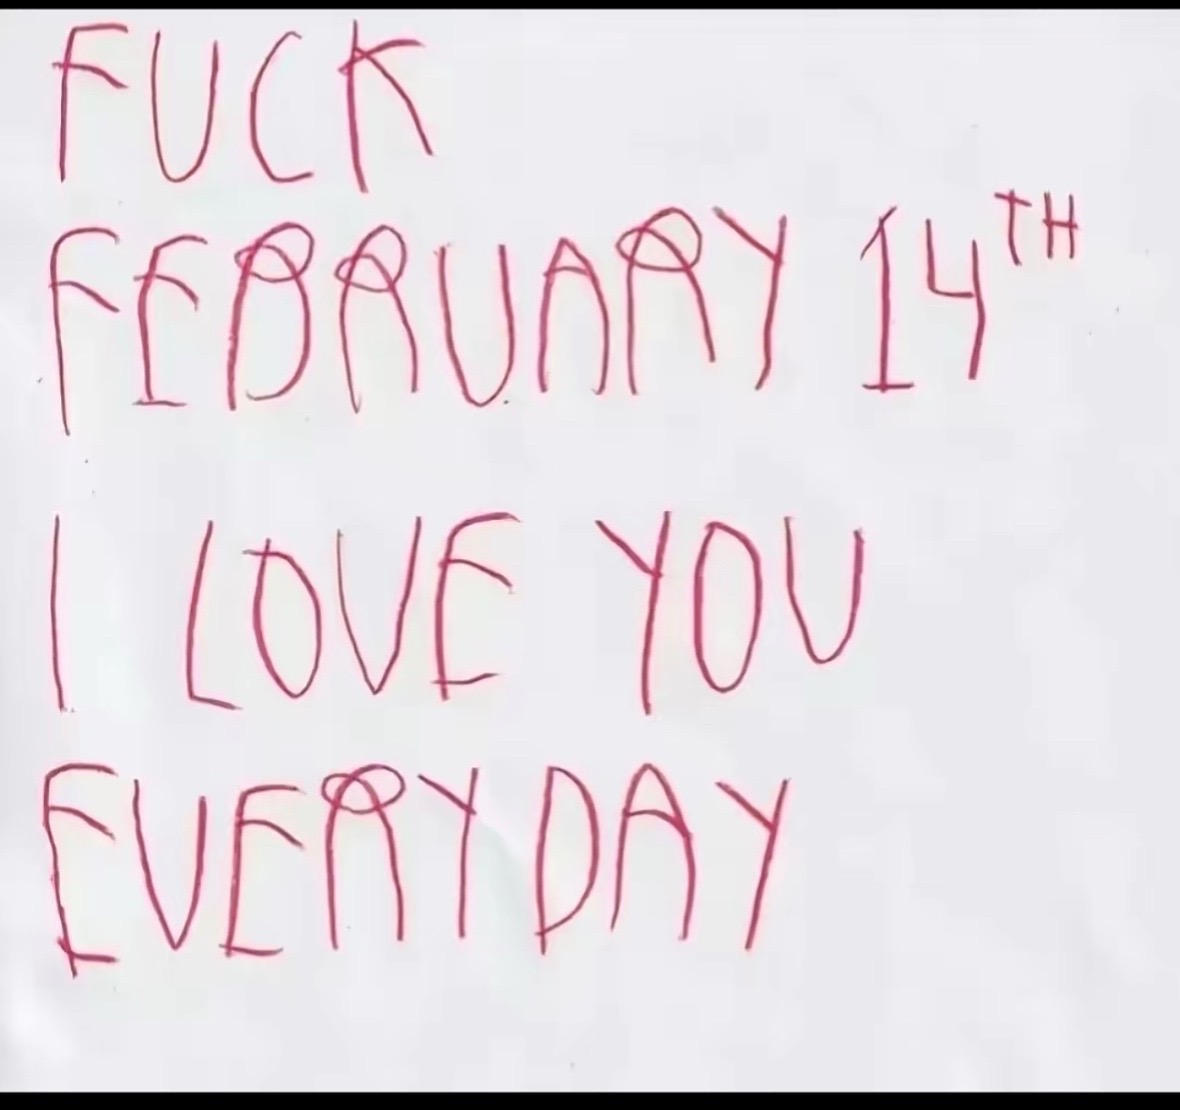 FUCK
FEBRUARY 14TH
I LOVE YOU
EVERYDAY